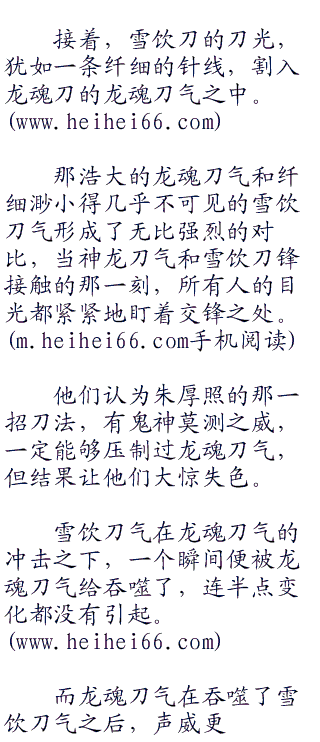 接着，雪饮刀的刀光，
犹如一条纤细的针线，割入
龙魂刀的龙魂刀气之中。
(www.heihei66.com)
那浩大的龙魂刀气和纤
细渺小得几乎不可见的雪饮
刀气形成了无比强烈的对
比，当神龙刀气和雪饮刀锋
接触的那一刻，所有人的目
光都紧紧地盯着交锋之处。
(m.heihei66.com手机阅读)
他们认为朱厚照的那一
招刀法，有鬼神莫测之威，
一定能够压制过龙魂刀气，
但结果让他们大惊失色。
雪饮刀气在龙魂刀气的
冲击之下，一个瞬间便被龙
魂刀气给吞噬了，连半点变
化都没有引起。
(www.heihei66.com)
而龙魂刀气在吞噬了雪
饮刀气之后，声威更